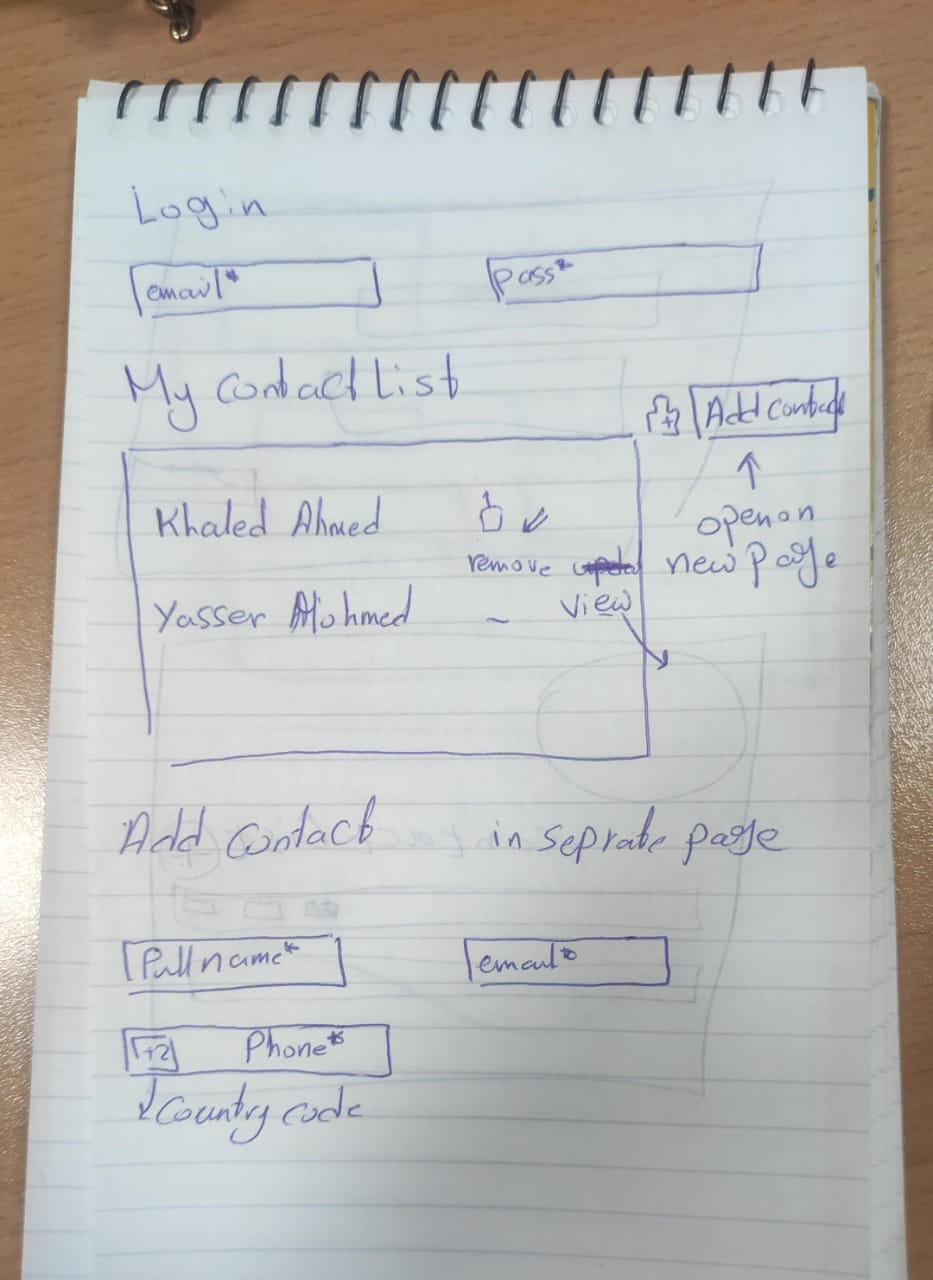 Login
email* pass*
My contact List
Add contact
Khaled Ahmed
open on
new page
remove
view
Yasser Mohmed
Add contact in seprate page
Full name* email*
+2 Phone*
Country code